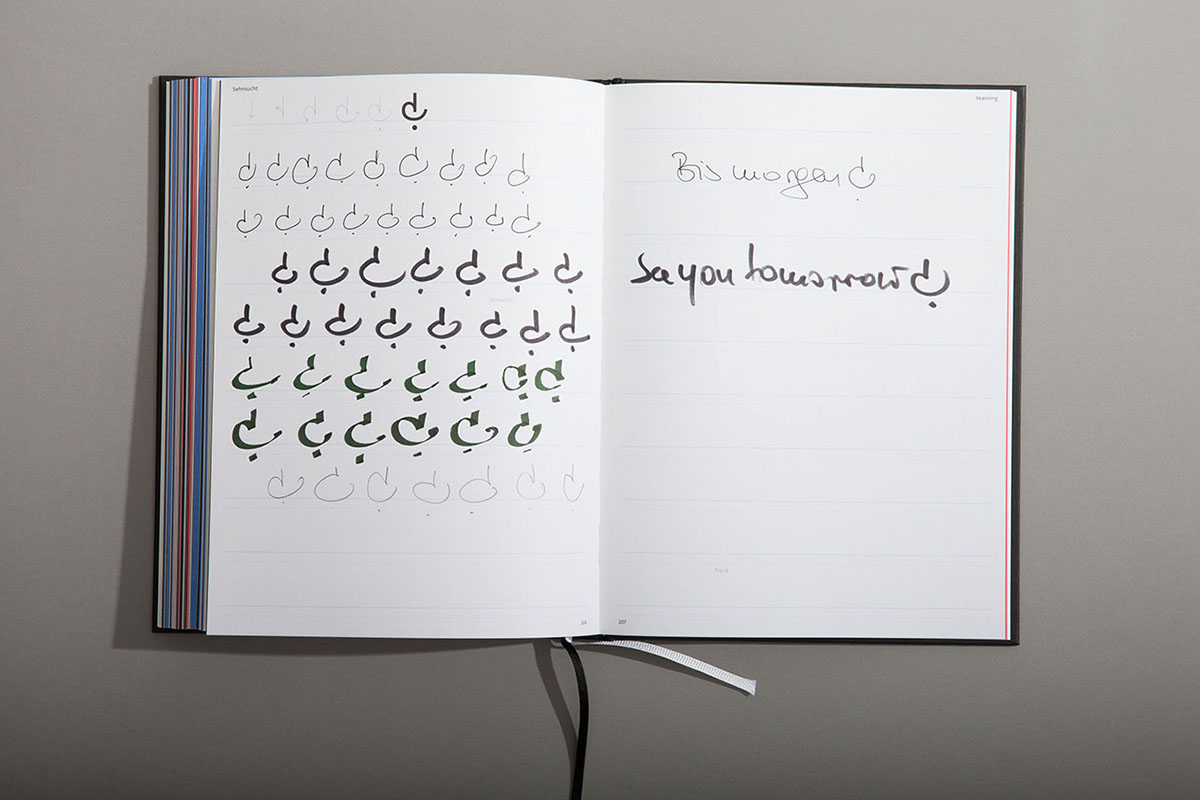 Sehnsucht
Yearning
Bis morgen
See you tomorrow
Try it
207